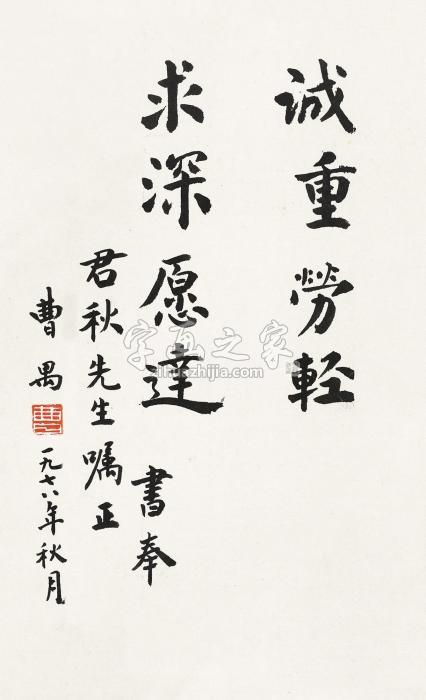 诚重劳輕
求深愿達 書奉
君秋先生嘱正
曹禺
一九七八年秋月
字画之家
zihuazhijia.com